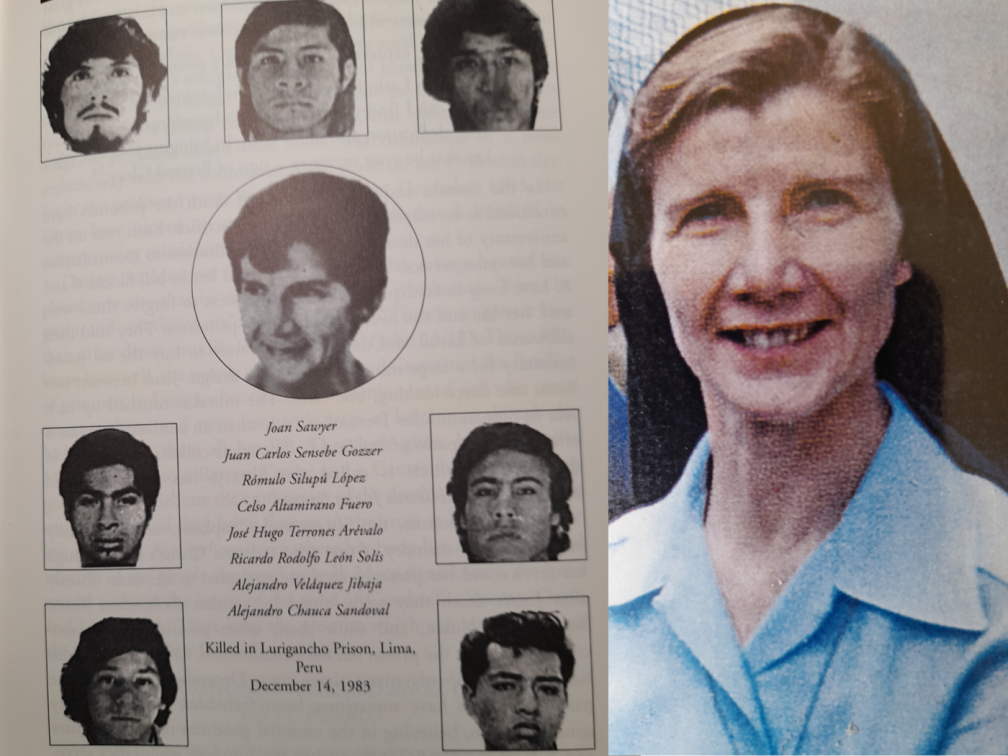 Joan Sawyer
Juan Carlos Sensebe Gozzer
Rómulo Silupú López
Celso Altamirano Fuero
José Hugo Terrones Arévalo
Ricardo Rodolfo León Solís
Alejandro Veláquez Jibaja
Alejandro Chauca Sandoval
Killed in Lurigancho Prison, Lima,
Peru
December 14, 1983